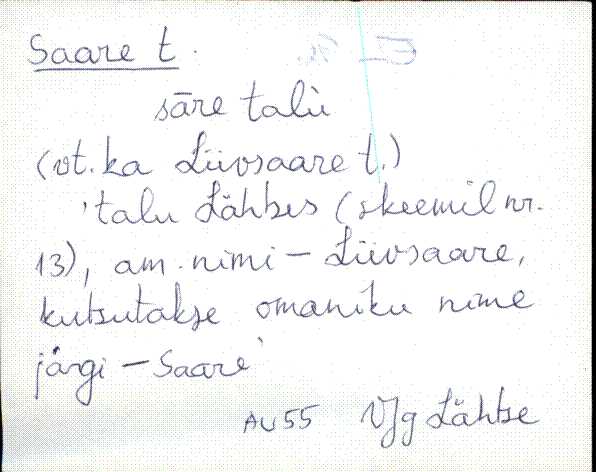 Saare t.
sāre talù
(vt. ka Liivsaare t.)
'talu Lähtses (skeemil nr.
13), am. nimi - Liivsaare,
kutsutakse omaniku nime
järgi - Saare'
AU55 VJg Lähtse